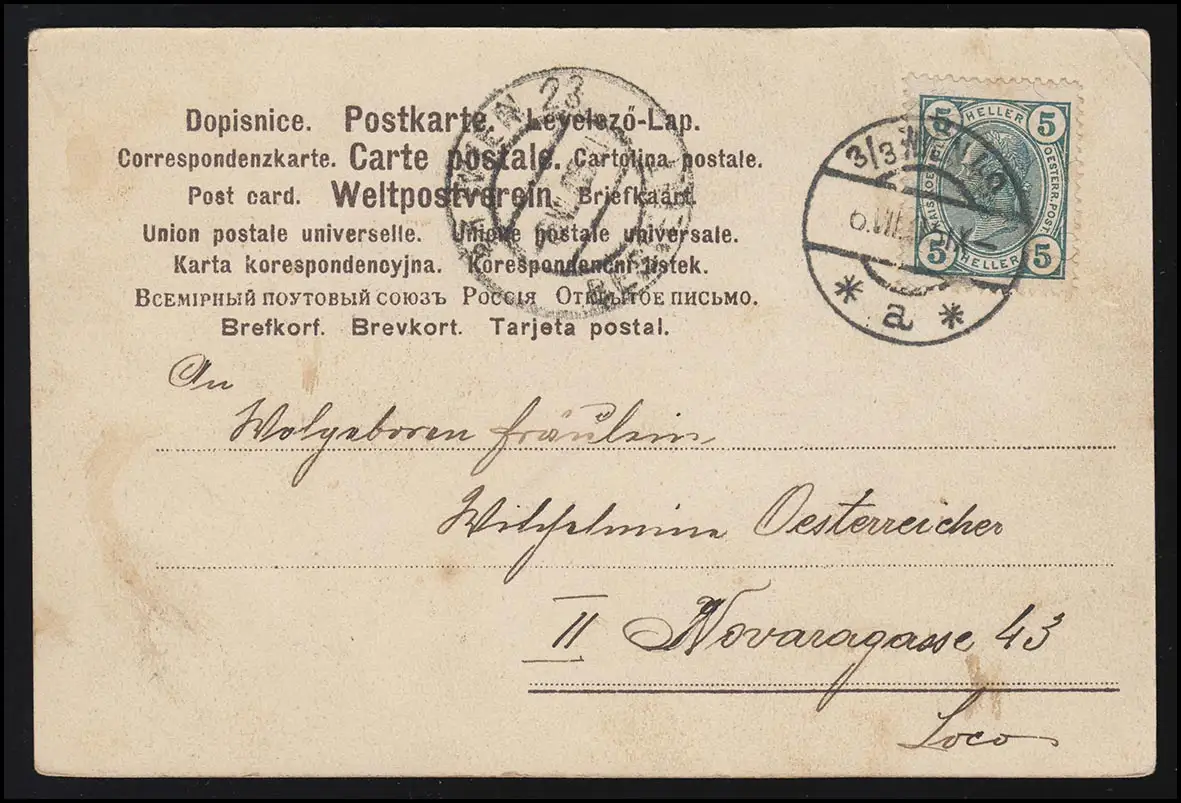 Dopisnice. Postkarte. Levelező-Lap.
Correspondenzkarte. Carte postale. Cartolina postale.
Post card. Weltpostverein. Briefkaart.
Union postale universelle. Unione postale universale.
Karta korespondencyjna. Korespondenčni listek.
Всемірный поутовый союзъ Россія Открытое письмо.
Brefkorf. Brevkort. Tarjeta postal.
WIEN 23
5 HELLER 5
OESTERR. POST
5 HELLER 5
3/3 WIEN
* a *
An
Wolgeboren Fräulein
Wilhelmine Oesterreicher
II Novaragasse 43
Loco